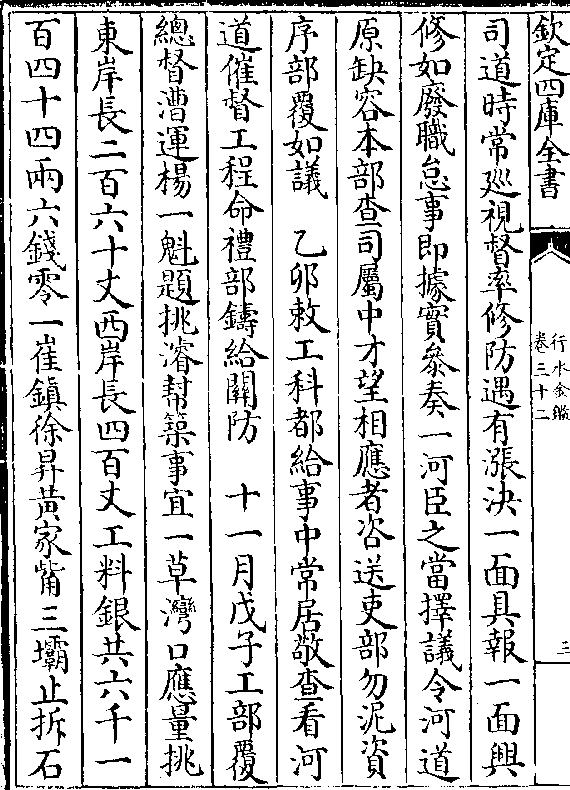 欽定四庫全書
行水金鑑
卷三十二
三
司道時常廵視督率修防遇有漲決一面具報一面興
修如廢職怠事即據實叅奏一河臣之當擇議令河道
原缺容本部查司屬中才望相應者咨送吏部勿泥資
序部覆如議　乙卯敕工科都給事中常居敬查看河
道催督工程命禮部鑄給關防　十一月戊子工部覆
總督漕運楊一魁題挑濬幇築事宜一草灣口應量挑
東岸長二百六十丈西岸長四百丈工料銀共六千一
百四十四兩六錢零一崔鎮徐昇黃家觜三壩止拆石